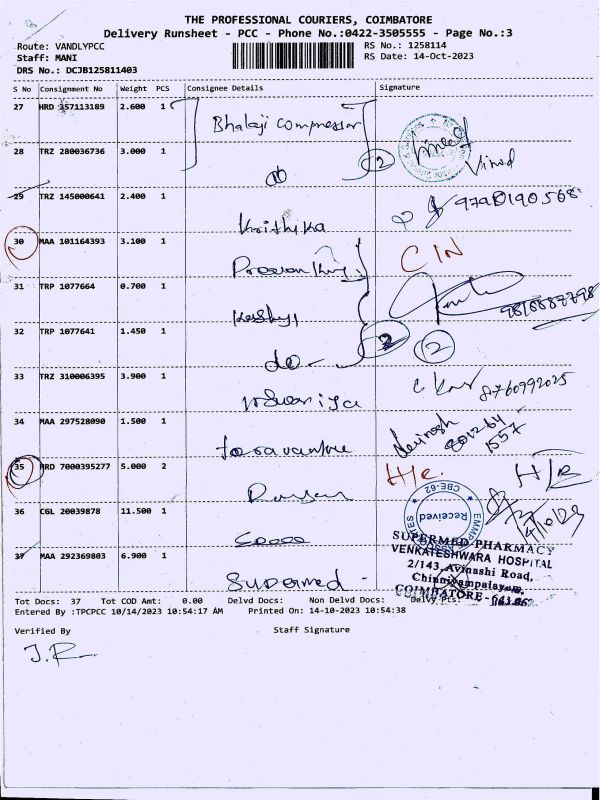 THE PROFESSIONAL COURIERS, COIMBATORE
Delivery Runsheet - PCC - Phone No.:0422-3505555 - Page No.:3
Route: VANDLYPCC
RS No.: 1258114
Staff: MANI
RS Date: 14-Oct-2023
DRS No.: DCJB125811403
S No Consignment No Weight PCS Consignee Details Signature
27 HRD 357113189 2.600 1
Bhalaji Compressor
28 TRZ 280036736 3.000 1
2
Vinod
29 TRZ 145000641 2.400 1
Krithika
30 MAA 101164393 3.100 1
CIN
31 TRP 1077664 0.700 1
32 TRP 1077641 1.450 1
2 2
do-
33 TRZ 310006395 3.900 1
8760992025
34 MAA 297528090 1.500 1
35 HRD 7000395277 5.000 2
H/R
36 CGL 20039878 11.500 1
CBE-62
Received
37 MAA 292369803 6.900 1
Supermed -
SUPERMED PHARMACY
VENKATESHWARA HOSPITAL
2/143, Avinashi Road,
Chinniyampalayam,
COIMBATORE - 641062
Tot Docs: 37 Tot COD Amt: 0.00 Delvd Docs: Non Delvd Docs: Delvy Pts:
Entered By :TPCPCC 10/14/2023 10:54:17 AM Printed On: 14-10-2023 10:54:38
Verified By Staff Signature
J.R